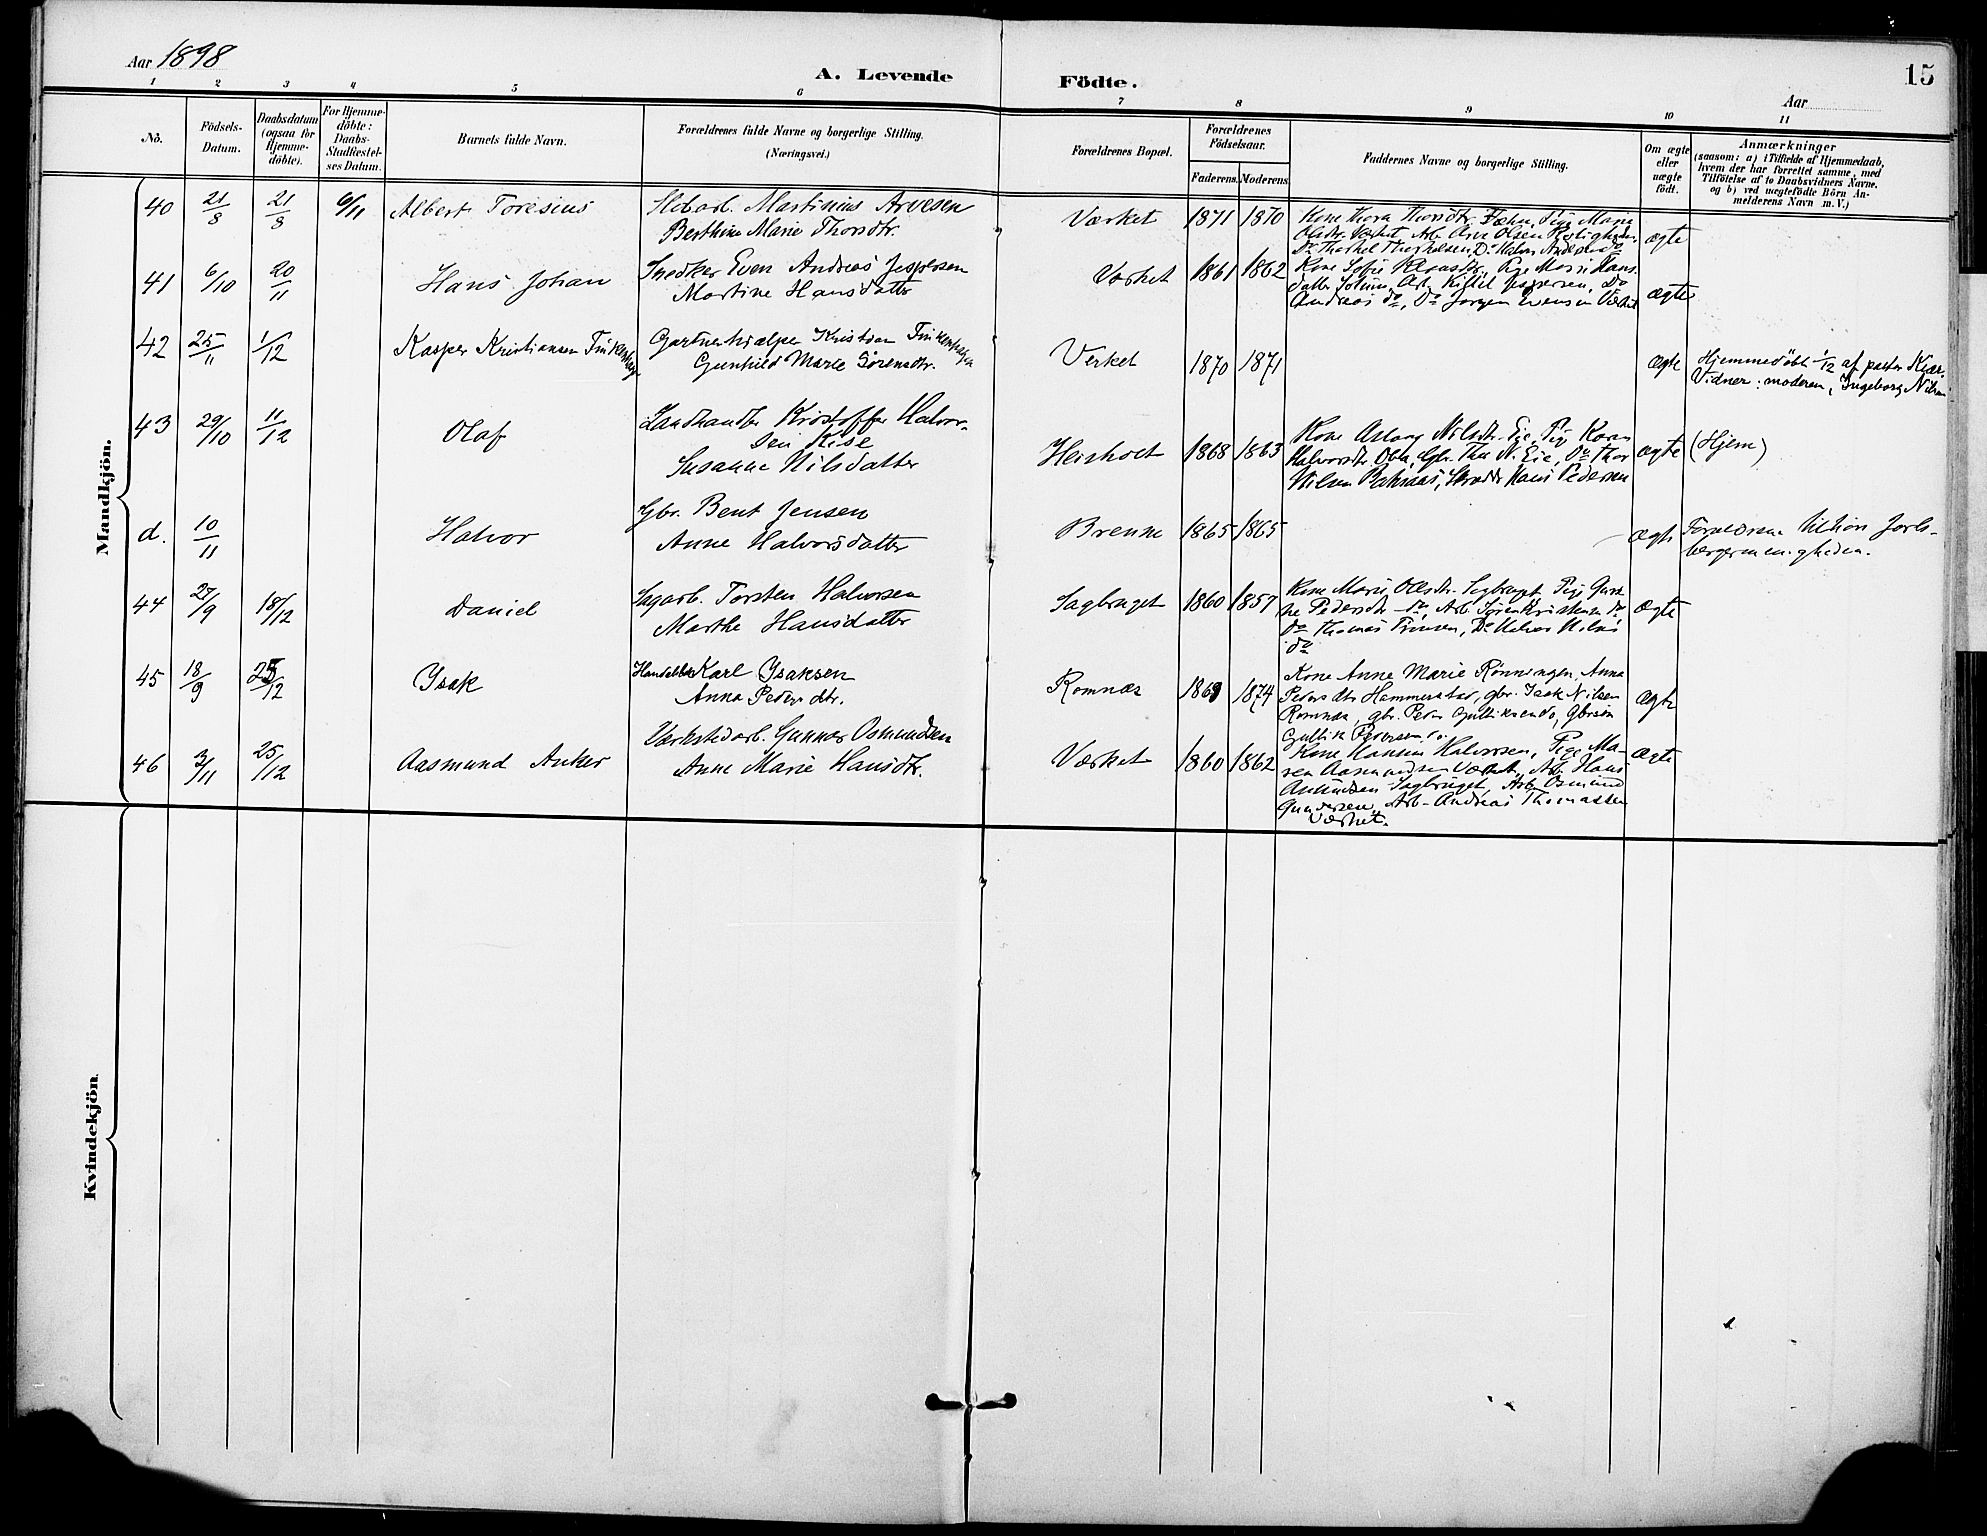 Aar 1898
A. Levende Födte.
15
Aar
1 2 3 4 5 6 7 8 9 10 11
No.
Födsels-Datum.
Daabsdatum (ogsaa for Hjemmedöbte).
For Hjemmedöbte: Daabs-Stadfæstelses Datum.
Barnets fulde Navn.
Forældrenes fulde Navne og borgerlige Stilling.
(Næringsvei.)
Forældrenes Bopæl.
Forældrenes Födselsaar.
Faderens. Moderens.
Faddernes Navne og borgerlige Stilling.
Om ægte eller uægte födt.
Anmærkninger
(saasom: a) i Tilfælde af Hjemmedaab,
hvem der har forrettet samme, med
Tilföielse af to Daabsvidners Navne,
og b) ved uægtefödte Börn An-
melderens Navn m. V.)
Mandkjön.
40 21/8 21/8 6/11 Albert Toresius
Martinius Arvesen
Berthine Marie Thorsdtr.
Værket 1871 1870
Kone Thora Thorsdtr.
ægte
41 6/10 20/11 Hans Johan
Snedker Even Andreas Jespersen
Martine Hansdatter
Værket 1861 1862
Kone Sofie
Andreas do, Do Jørgen Evensen Værket
ægte
42 25/11 1/12 Kasper Kristiansen Finkenhagen
Gartnerhjælper Kristian Finkenhagen
Gunhild Marie Sørensdtr.
Verket 1870 1871
ægte
Hjemmedöbt 1/12 af pastor Kjær.
Vidner: moderen, Ingeborg Nilsen
43 29/10 11/12 Olaf
Landhandler Kristoffer Halvor-
sen Kise
Susanne Nilsdatter
Heisholt 1868 1863
Kone Aslaug Nilsdtr. Eie, Pig Karen
Halvorsdtr. Gbr. N. Eie, Do Thor
Nilsen Skrædder Hans Pedersen
ægte (Hjem)
d. 10/11 Halvor
Gbr. Bent Jensen
Anne Halvorsdatter
Brenne 1865 1865
ægte
Forældrene tilhøre Jarls-
bergermenigheden.
44 27/9 18/12 Daniel
Sagarb. Torsten Halvorsen
Marthe Hansdatter
Sagbruget 1860 1857
Kone Marie Olsdtr. Sagbruget, Pige
Pedersdtr do, Arb. Søren Kristensen do
do Thomas
do
ægte
45 18/9 25/12 Ysak
Karl Ysaksen
Anna Pedersdtr.
Romnæs 1869 1874
Kone Anne Marie Rønningen, Anna
Pedersdtr Hammerstad, gbr. Isak Nilsen
Romnæs, gbr. Peder Gulliksen do, gbrsøn
Gullik Pedersen do.
ægte
46 3/11 25/12 Aasmund Anker
Værkstedarb. Gunnar Osmundsen
Anne Marie Hansdtr.
Værket 1860 1862
Kone Hansine Halvorsen, Pige Ma-
ren Aasmundsen Værket, Arb. Hans
Amundsen Sagbruget, Arb. Osmund
Gundersen, Arb- Andreas Thomassen
Værket.
ægte
Kvindekjön.